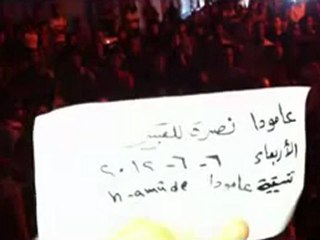 عامودا نصرة للقبير
الأربعاء ٦-٦-٢٠١٢
تنسيقية عامودا n-amûde